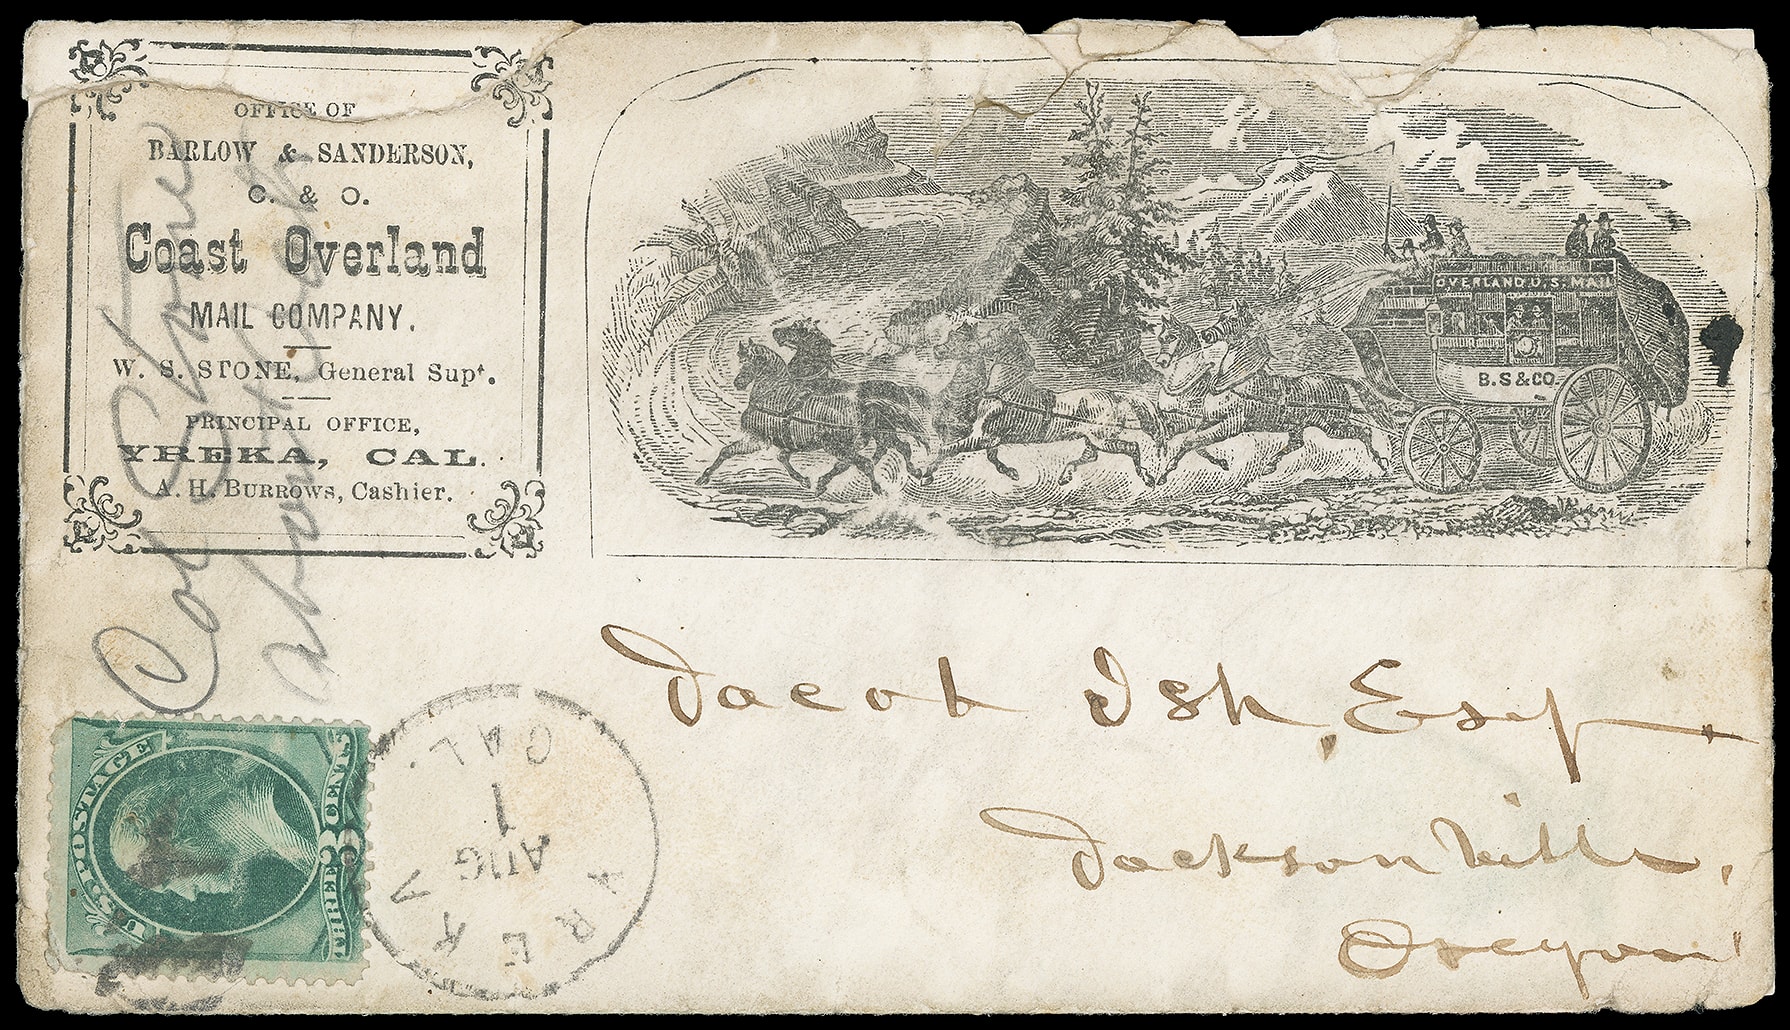 OFFICE OF
BARLOW & SANDERSON,
C. & O.
Coast Overland
MAIL COMPANY.
W. S. STONE, General Supt.
PRINCIPAL OFFICE,
YREKA, CAL.
A. H. BURROWS, Cashier.
OVERLAND U.S. MAIL
B. S & CO.
Col Stone
Jacob Ish, Esq
Jacksonville,
Oregon
U.S. POSTAGE
THREE 3 CENTS
YREKA
AUG
1
CAL.